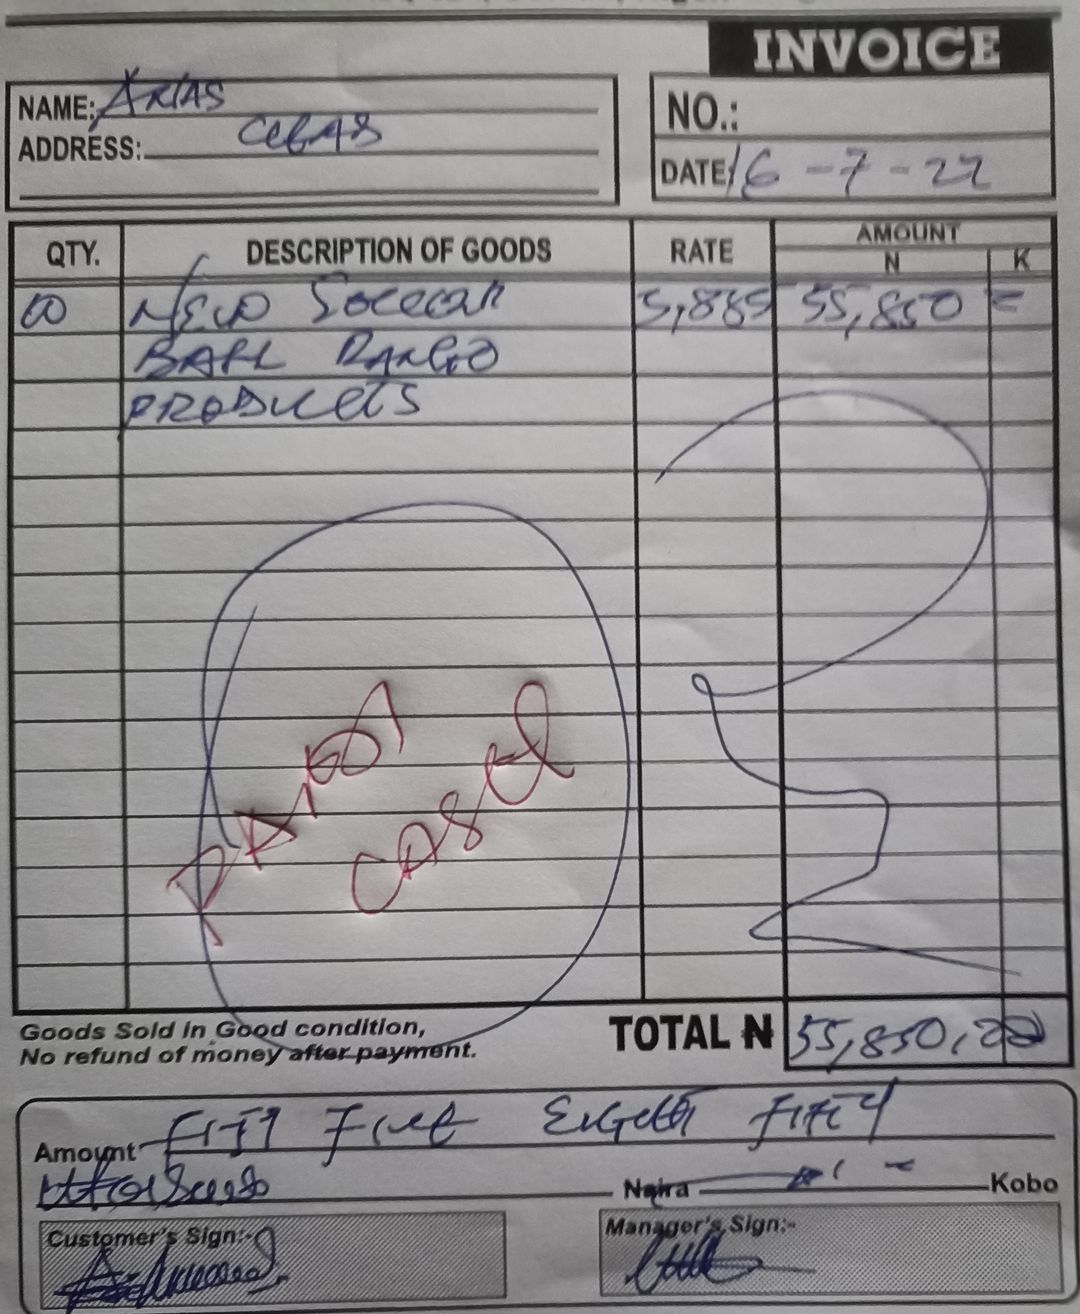 INVOICE
NAME: ARIAS
ADDRESS:
NO.:
DATE 16-7-22
QTY. DESCRIPTION OF GOODS RATE AMOUNT
N K
10 NEW 5,885 55,850 =
BALL
PRODUCTS
PAID
CASH
Goods Sold in Good condition,
No refund of money after payment.
TOTAL ₦ 55,850,00
Amount FIFTY FIVE EIGHT FIFTY
Naira Kobo
Customer's Sign:-
Manager's Sign:-